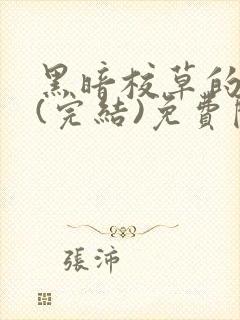 黑暗校草的
(完結)免費
張沛